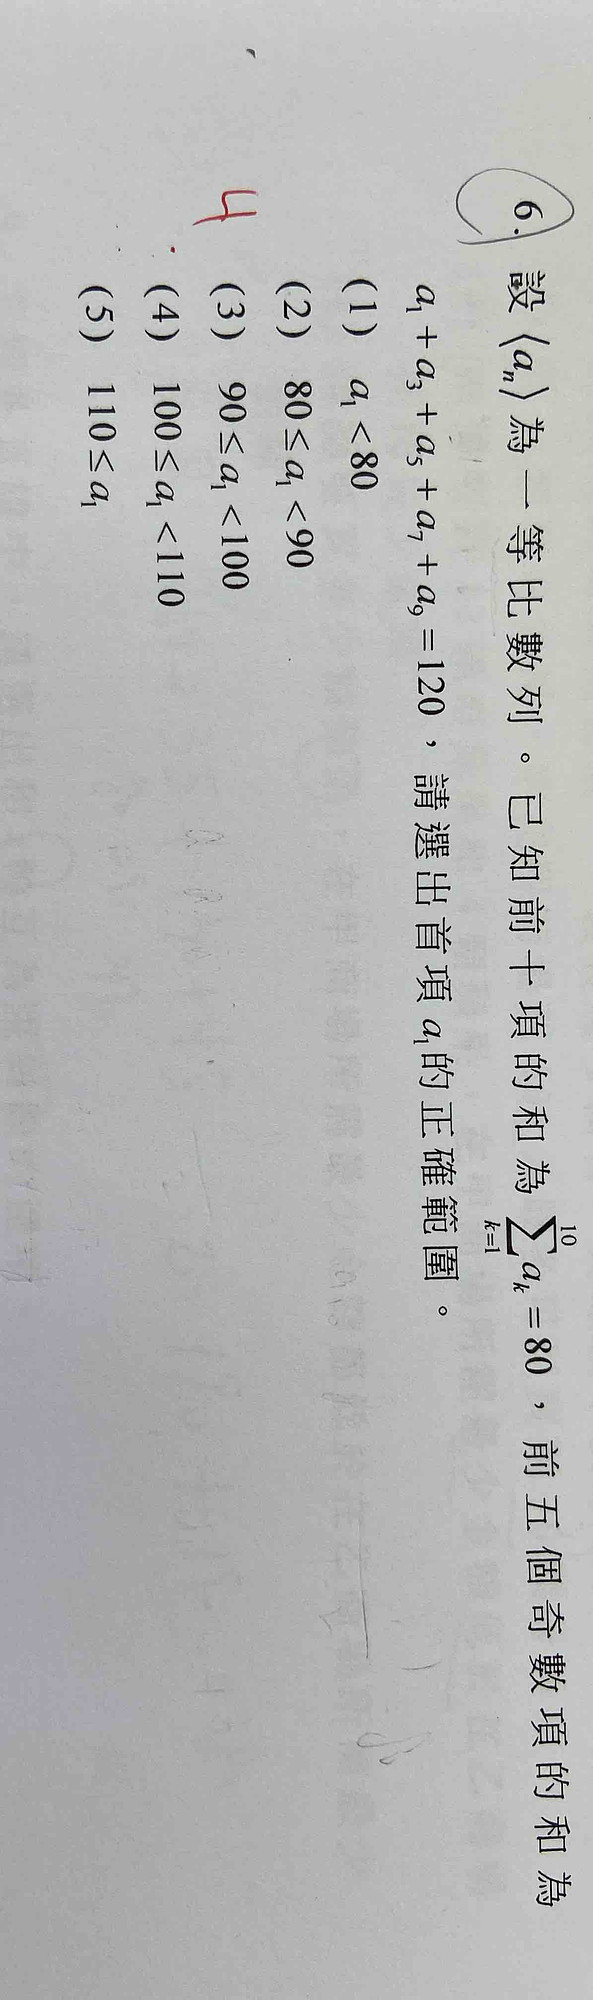 6. 設〈aₙ〉為一等比數列。已知前十項的和為 \sum_{k=1}^{10} a_k = 80,前五個奇數項的和為
a₁ + a₃ + a₅ + a₇ + a₉ = 120,請選出首項 a₁ 的正確範圍。
(1) a₁ < 80
(2) 80 ≤ a₁ < 90
4 (3) 90 ≤ a₁ < 100
(4) 100 ≤ a₁ < 110
(5) 110 ≤ a₁